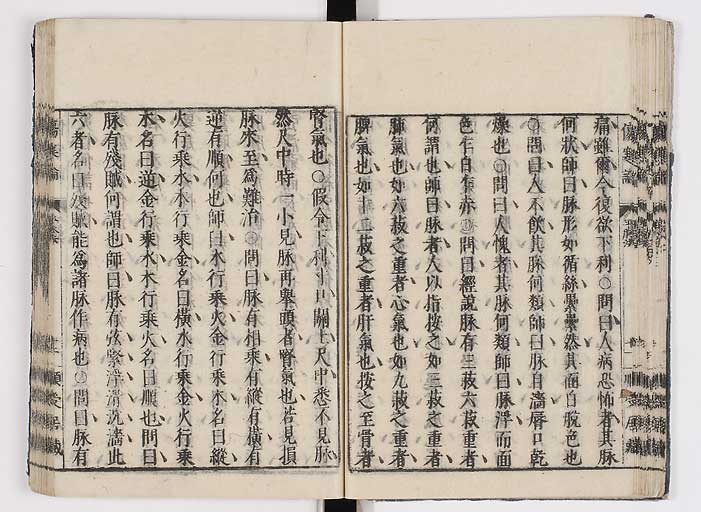 痛雖爾今復欲下利○問曰人病恐怖者其脉
何狀師曰脉形如循絲纍纍然其面白脫色也
○問曰人不飲其脉何類師曰脉自濇唇口乾
燥也○問曰人愧者其脉何類師曰脉浮而面
色乍白乍赤○問曰經說脉有三菽六菽重者
何謂也師曰脉者人以指按之如三菽之重者
肺氣也如六菽之重者心氣也如九菽之重者
脾氣也如十二菽之重者肝氣也按之至骨者
腎氣也○假令下利寸口關上尺中悉不見脉
然尺中時一小見脉再舉頭者腎氣也若見損
脉來至爲難治○問曰脉有相乘有縱有橫有
逆有順何也師曰水行乘火金行乘木名曰縱
火行乘水木行乘金名曰橫水行乘金火行乘
木名曰逆金行乘水木行乘火名曰順也問曰
脉有殘賊何謂也師曰脉有弦緊浮滑沉濇此
六者名曰殘賊能爲諸脉作病也○問曰脉有